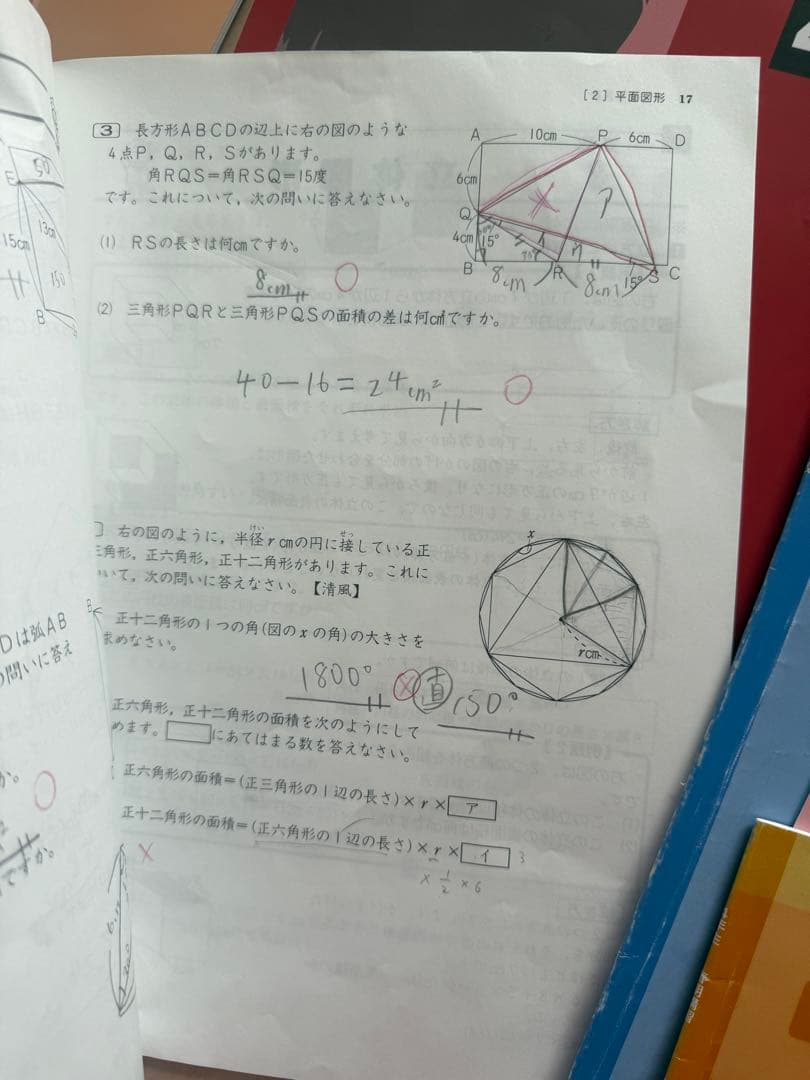 [2] 平面図形 17
3 長方形ABCDの辺上に右の図のような
4点P, Q, R, Sがあります。
角RQS=角RSQ=15度
です。これについて, 次の問いに答えなさい。
A 10cm P 6cm D
6cm
ア
Q
4cm 15°
B 8cm R 8cm 15° S C
(1) RSの長さは何cmですか。
8cm
(2) 三角形PQRと三角形PQSの面積の差は何cm²ですか。
40-16=24cm²
右の図のように, 半径rcmの円に接している正
三角形, 正六角形, 正十二角形があります。これに
ついて, 次の問いに答えなさい。【清風】
x
rcm
正十二角形の1つの角(図のxの角)の大きさを
求めなさい。
1800° 直 150°
正六角形, 正十二角形の面積を次のようにして
めます。 にあてはまる数を答えなさい。
正六角形の面積=(正三角形の1辺の長さ)×r×ア
正十二角形の面積=(正六角形の1辺の長さ)×r×イ 3
×1/2×6
E
13cm
15cm
B
Dは弧AB
の問いに答え
か。
ですか。